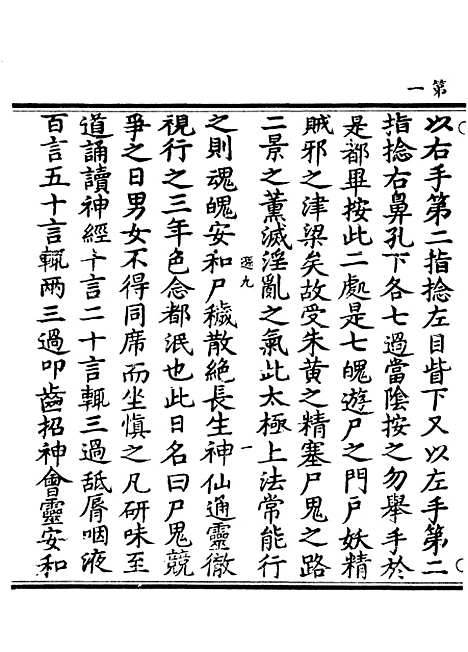 第一
以右手第二指捻左目眥下又以左手第二
指捻右鼻孔下各七過當陰按之勿舉手於
是都畢按此二處是七魄遊尸之門戶妖精
賊邪之津梁矣故受朱黃之精塞尸鬼之路
二景之薰滅淫亂之氣此太極上法常能行
遜九 一
之則魂魄安和尸穢散絕長生神仙通靈徹
視行之三年色念都泯也此日名曰尸鬼競
爭之日男女不得同席而坐慎之凡研味至
道誦讀神經十言二十言輒三過舐脣咽液
百言五十言輒兩三過叩齒招神會靈安和